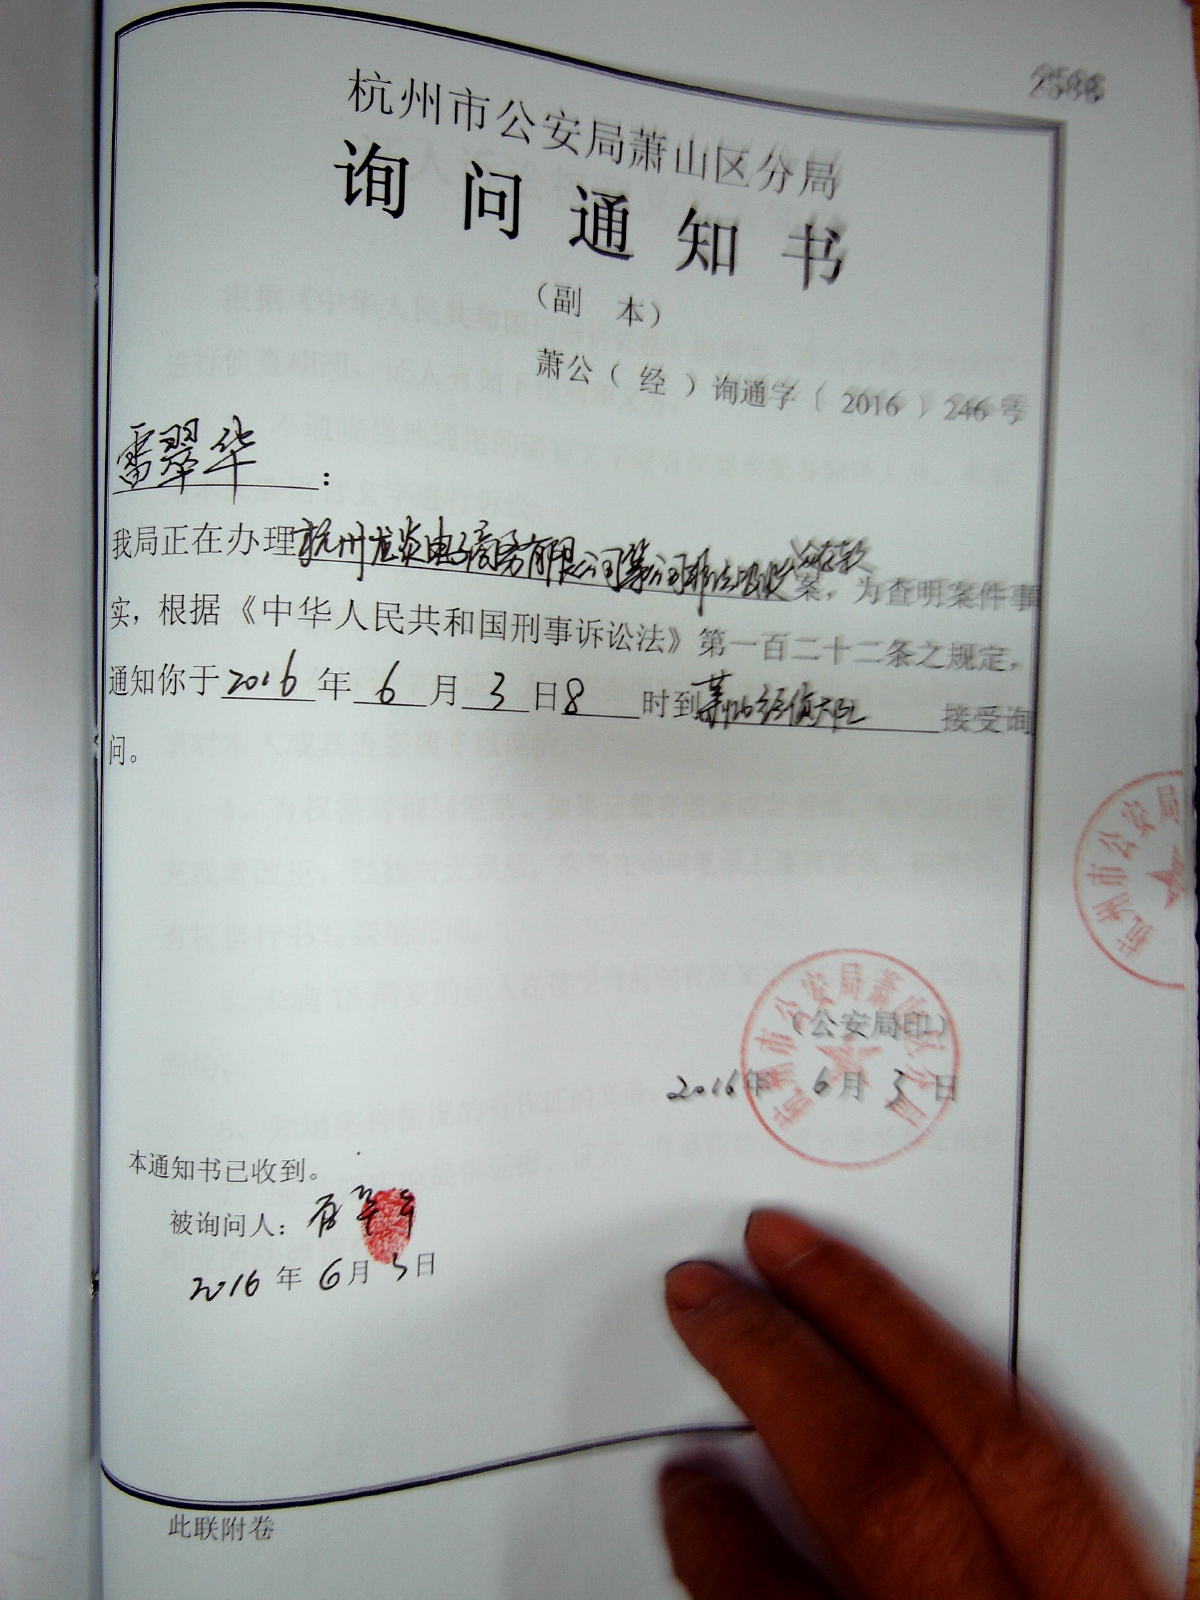 2586
杭州市公安局萧山区分局
询问通知书
（副 本）
萧公（经）询通字〔2016〕246号
雷翠华：
我局正在办理杭州龙炎电子商务有限公司等公司非法吸收公众存款案，为查明案件事
实，根据《中华人民共和国刑事诉讼法》第一百二十二条之规定，
通知你于2016年6月3日8时到萧山经侦大队接受询
问。
杭州市公安局
杭州市公安局萧山区分局
（公安局印）
2016年 6月 3日
本通知书已收到。
被询问人：
2016年6月3日
此联附卷